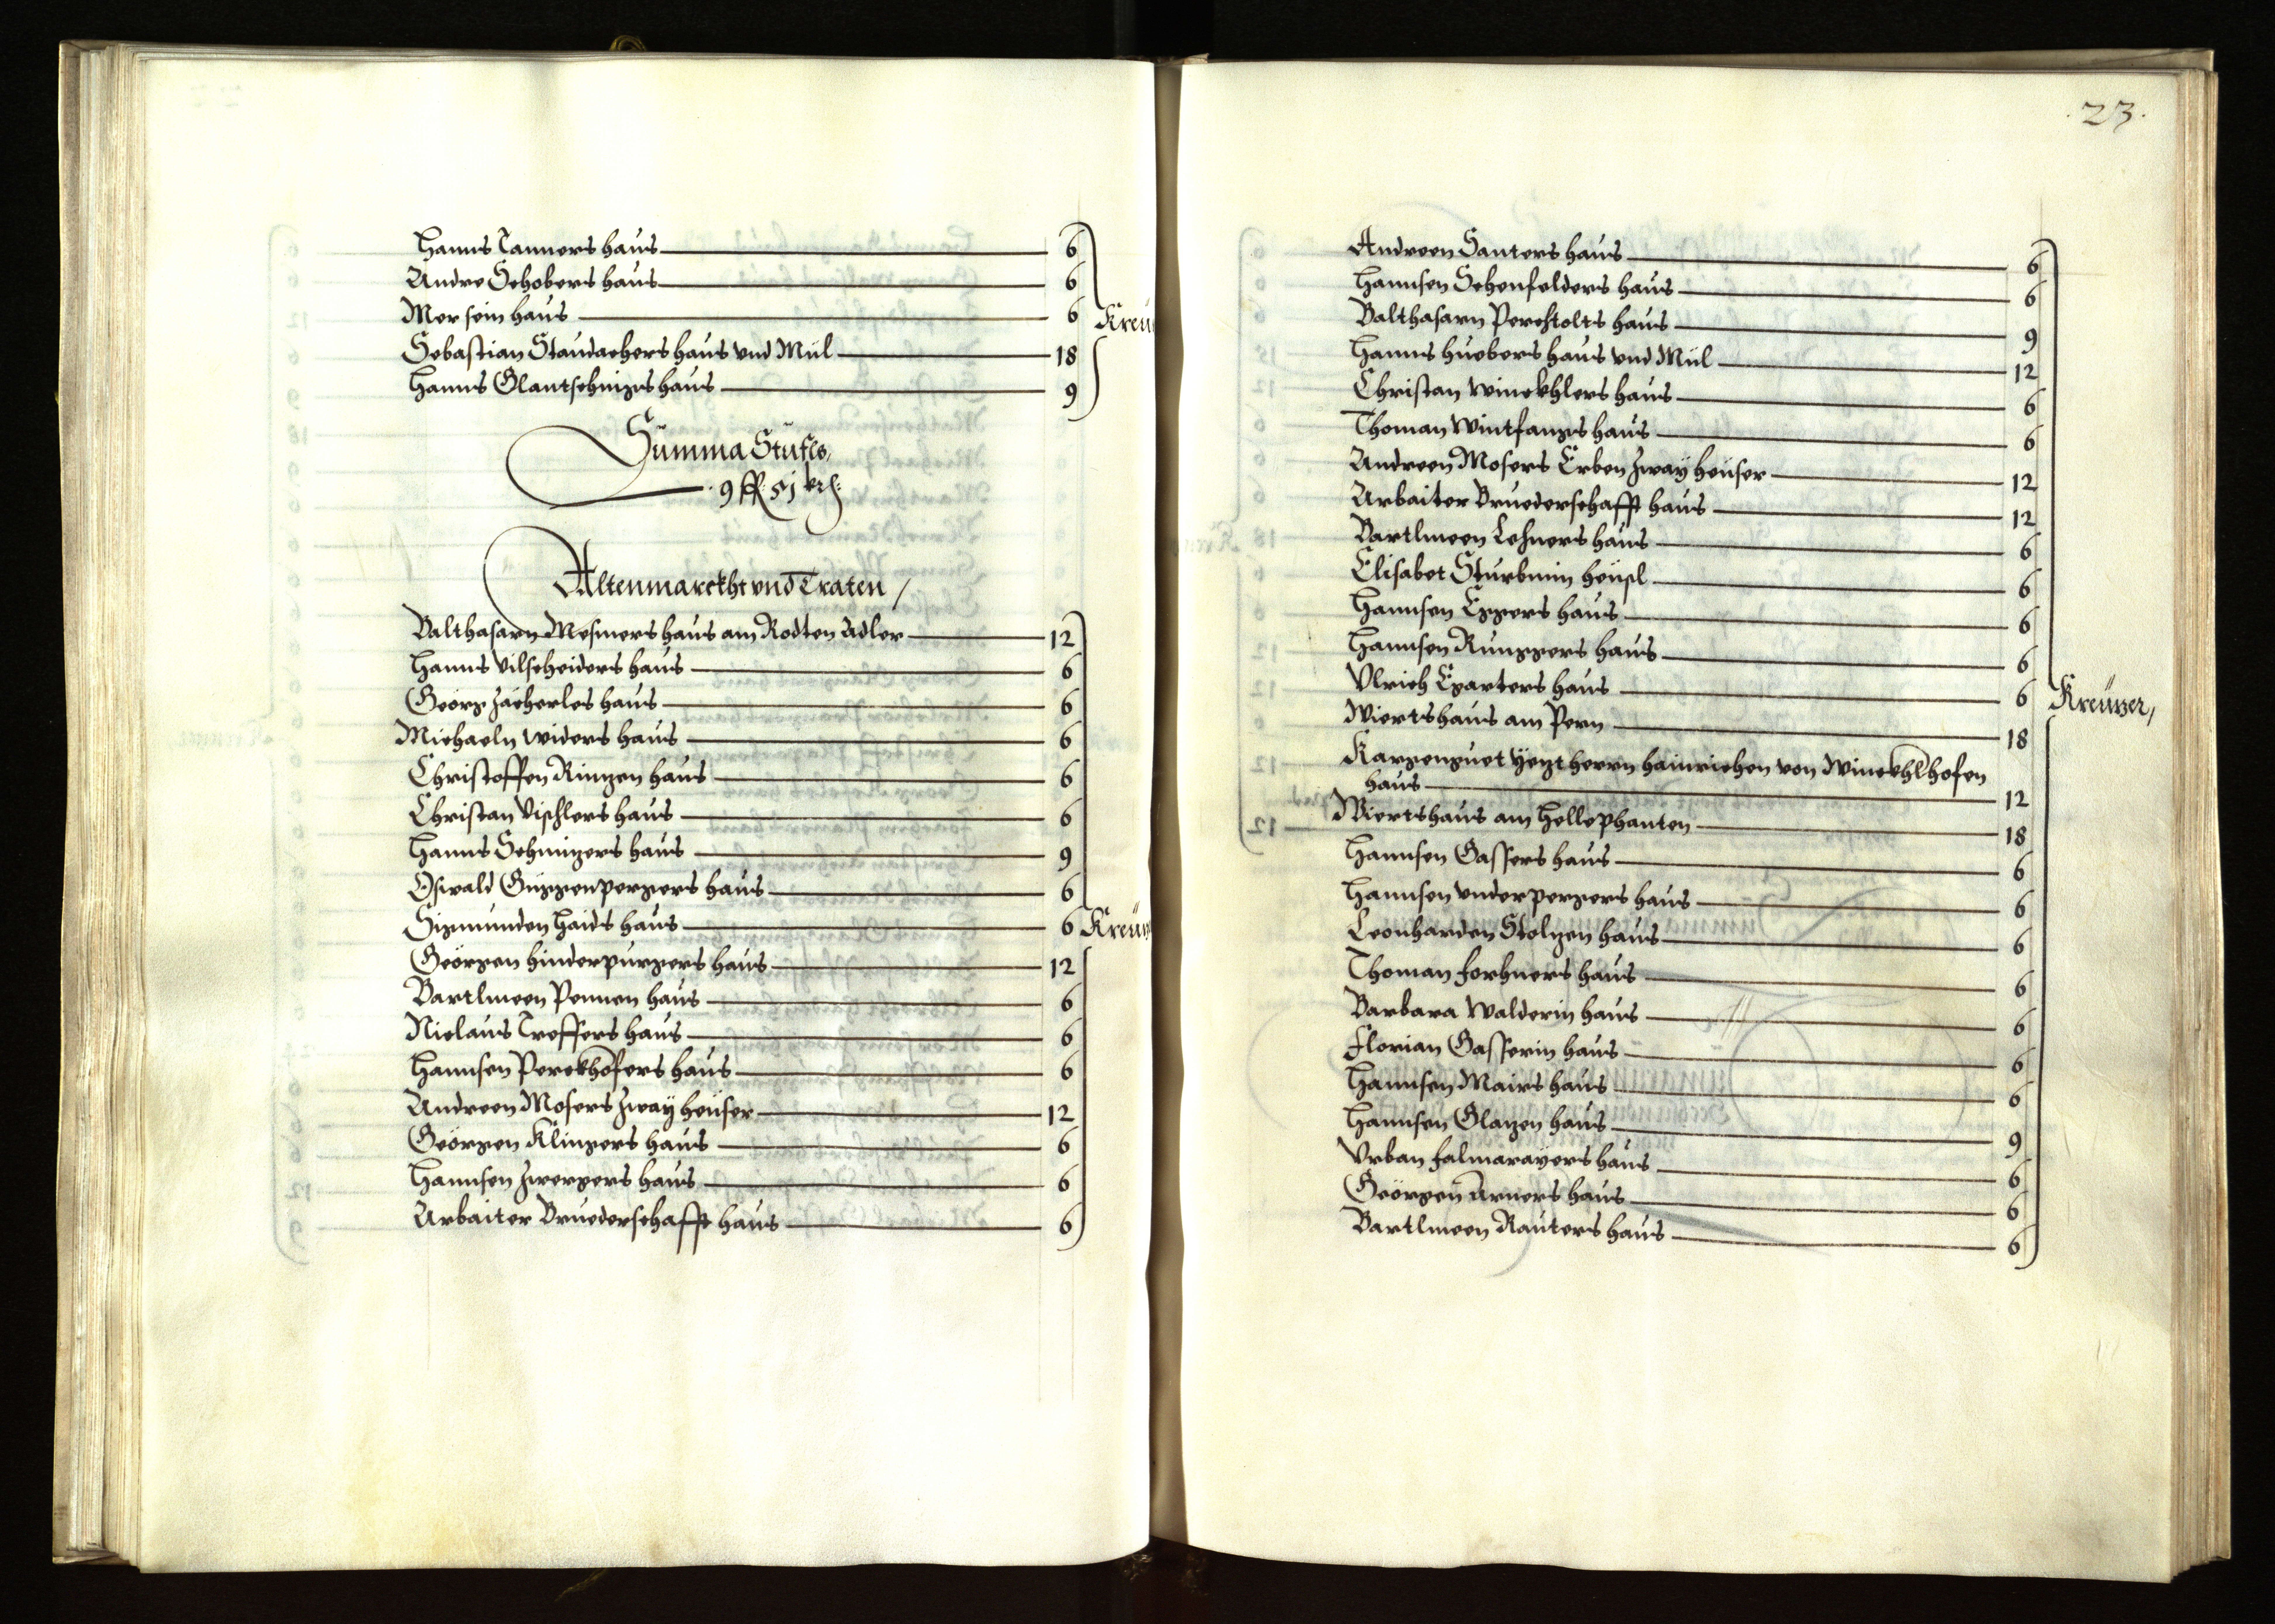 Hanns Tanners haus 6
Andre Schobers haus 6
Mer sein haus 6
Kreu
Sebastian Staudachers haus vnd Mül 18
Hanns Glantschnigs haus 9
Summa Stufls,
9 fl: 51 kr:
Altenmarckht vnd Traten /
Balthasarn Mesmers haus am Rodten Adler 12
Hanns Vilscheiders haus 6
Geörg Zächerles haus 6
Michaeln Widers haus 6
Christoffen Ringen haus 6
Christan Vischlers haus 6
Hanns Schnizers haus 9
Oswald Guggenpergers haus 6
Sigmunden Haids haus 6 Kreuz
Geörgen Hinderpurgers haus 12
Bartlmeen Pennen haus 6
Niclaus Treffers haus 6
Hannsen Perckhofers haus 6
Andreen Mosers Zway heüser 12
Geörgen Klingers haus 6
Hannsen Zwergers haus 6
Arbaiter Bruederschafft haus 6
23.
Andreen Santers haus 6
Hannsen Schenfelders haus 6
Balthasarn Perchtolts haus 9
Hanns Huebers haus vnd Mül 12
Christan Winckhlers haus 6
Thoman Wintfangs haus 6
Andreen Mosers Erben Zway heüser 12
Arbaiter Bruederschafft haus 12
Bartlmeen Lechners haus 6
Elisabet Sturbmin heüsl 6
Hannsen Eggers haus 6
Hannsen Runggers haus 6
Vlrich Egarters haus 6
Kreüzer,
Wiertshaus am Pern 18
Kargenguet Yezt herrn Hainrichen von Winckhlhofen
haus 12
Wiertshaus am Hellephanten 18
Hannsen Gassers haus 6
Hannsen Underpergers haus 6
Leonharden Stolzen haus 6
Thoman Forhners haus 6
Barbara Walderin haus 6
Florian Gasserin haus 6
Hannsen Mairs haus 6
Hannsen Glazen haus 9
Vrban Falmarayers haus 6
Geörgen Arners haus 6
Bartlmeen Rauters haus 6